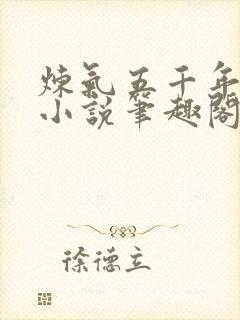 炼氣五千年
小説筆趣閣
徐德立